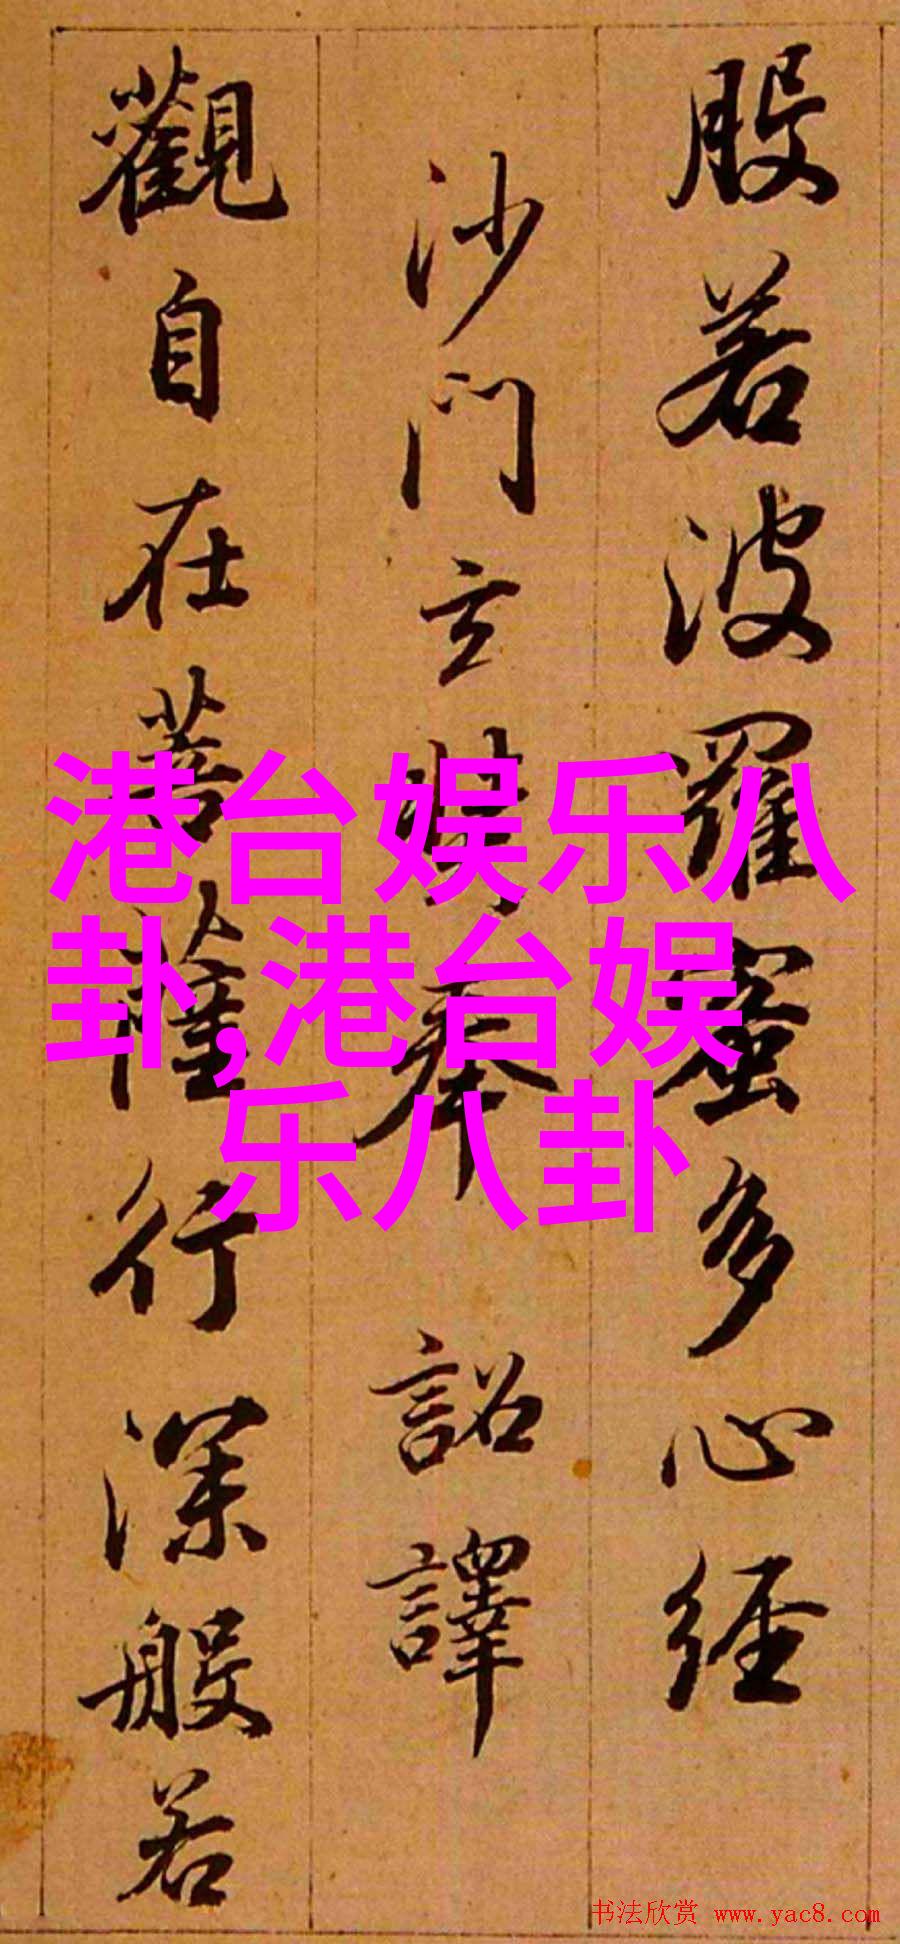 般若波羅蜜多心経
沙門玄奘奉 詔譯
觀自在菩薩行深般若
港台娱乐八
卦,港台娱
乐八卦
书法欣赏 www.yac8.com